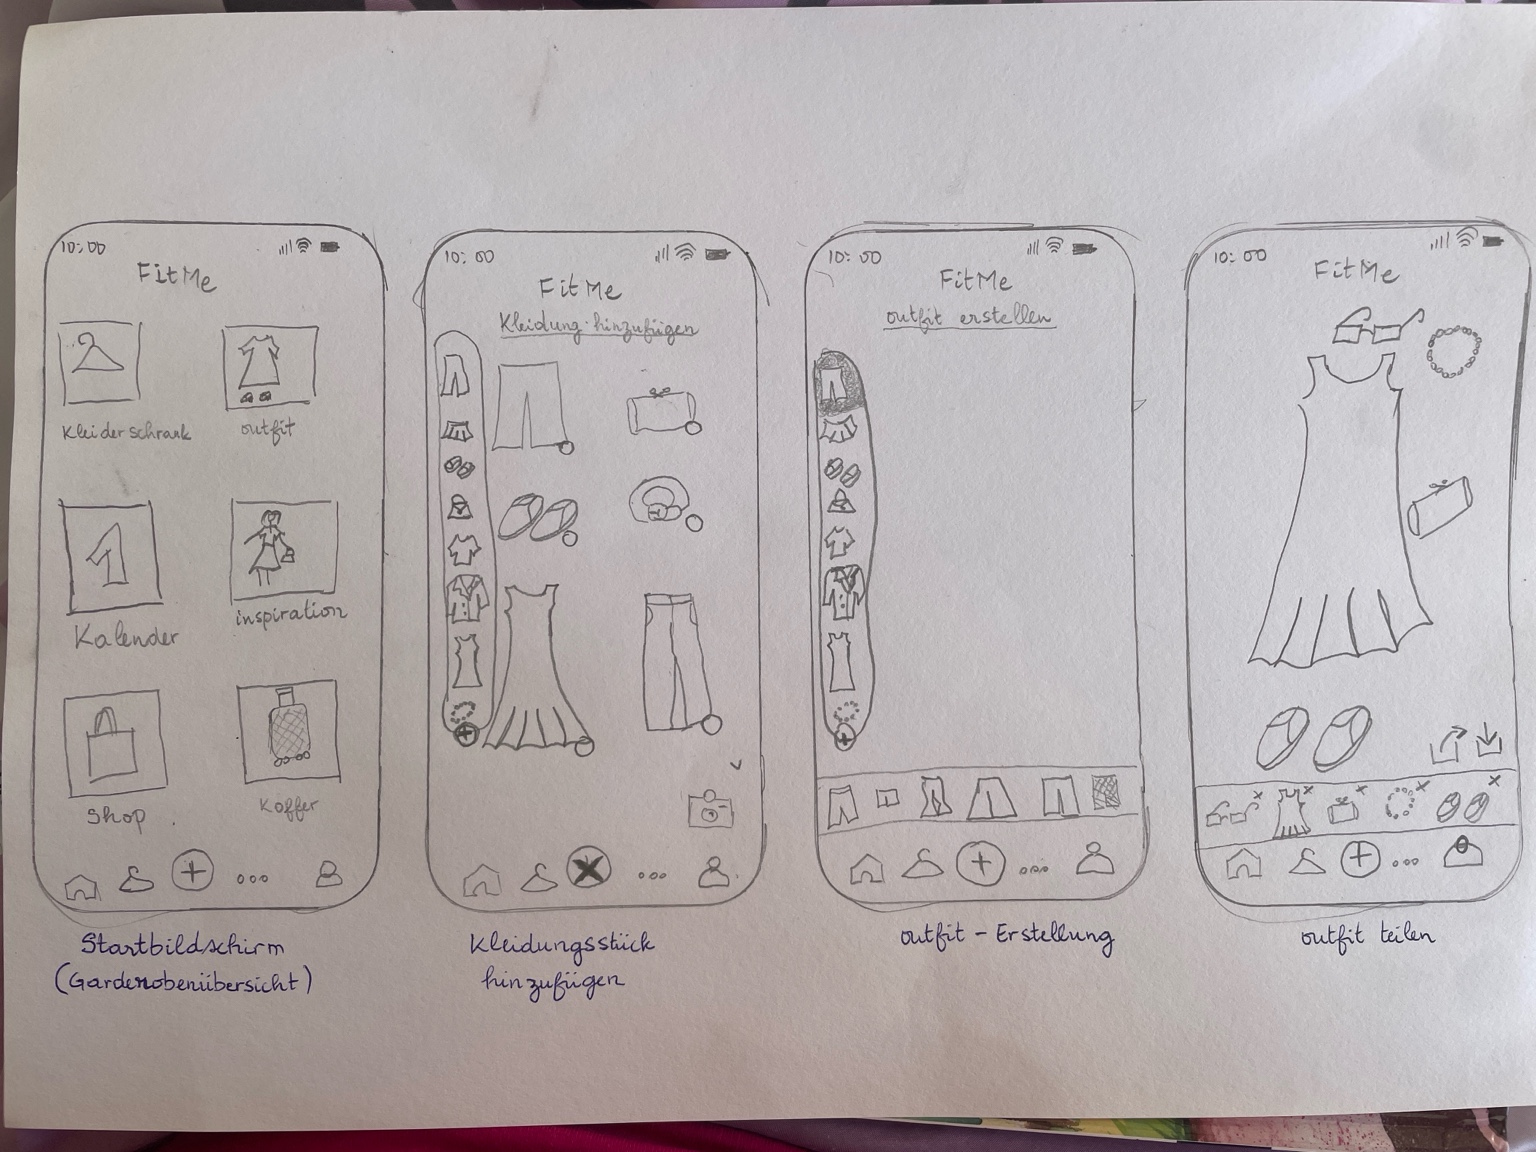 10:00
FitMe
Kleiderschrank
outfit
1
Kalender
inspiration
Shop
Koffer
Startbildschirm
(Garderobenübersicht)
10:00
FitMe
Kleidung hinzufügen
Kleidungsstück
hinzufügen
10:00
FitMe
outfit erstellen
outfit - Erstellung
10:00
FitMe
outfit teilen